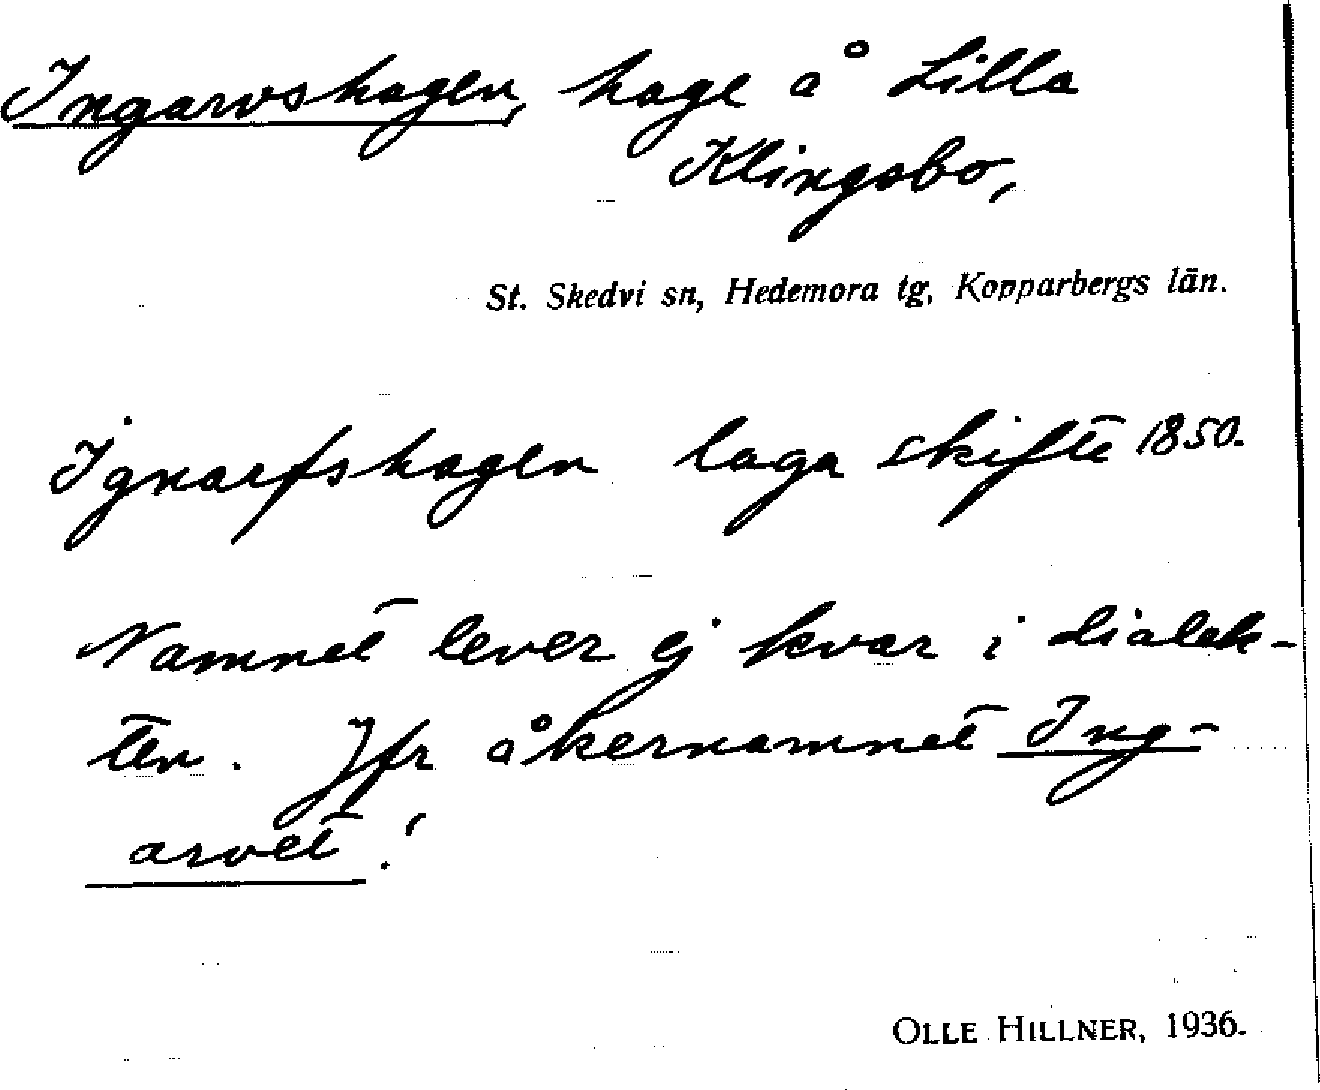 Ingarvshagen, hage å Lilla
Klingsbo,
St. Skedvi sn, Hedemora tg, Kopparbergs län.
Ignarfshagen laga skifte 1850.
Namnet lever ej kvar i dialek-
ten. Jfr åkernamnet Ing-
arvet!
OLLE HILLNER, 1936.